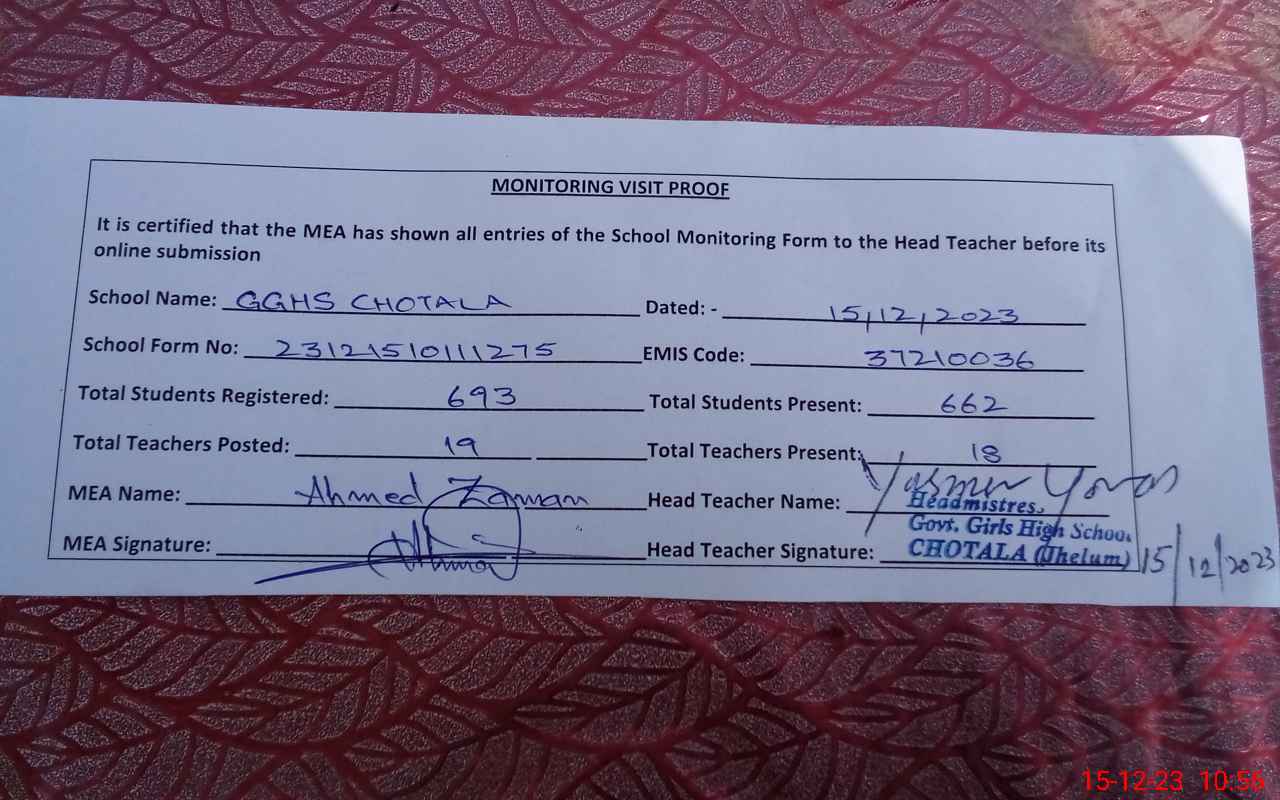 MONITORING VISIT PROOF
It is certified that the MEA has shown all entries of the School Monitoring Form to the Head Teacher before its
online submission
School Name: GGHS CHOTALA Dated: - 15,12,2023
School Form No: 23121510111275 EMIS Code: 37210036
Total Students Registered: 693 Total Students Present: 662
Total Teachers Posted: 19 Total Teachers Present: 18
MEA Name: Ahmed Zaman Head Teacher Name:
Headmistres,
Govt. Girls High School,
MEA Signature: Head Teacher Signature: CHOTALA (Jhelum) 15/12/2023
15-12-23 10:56